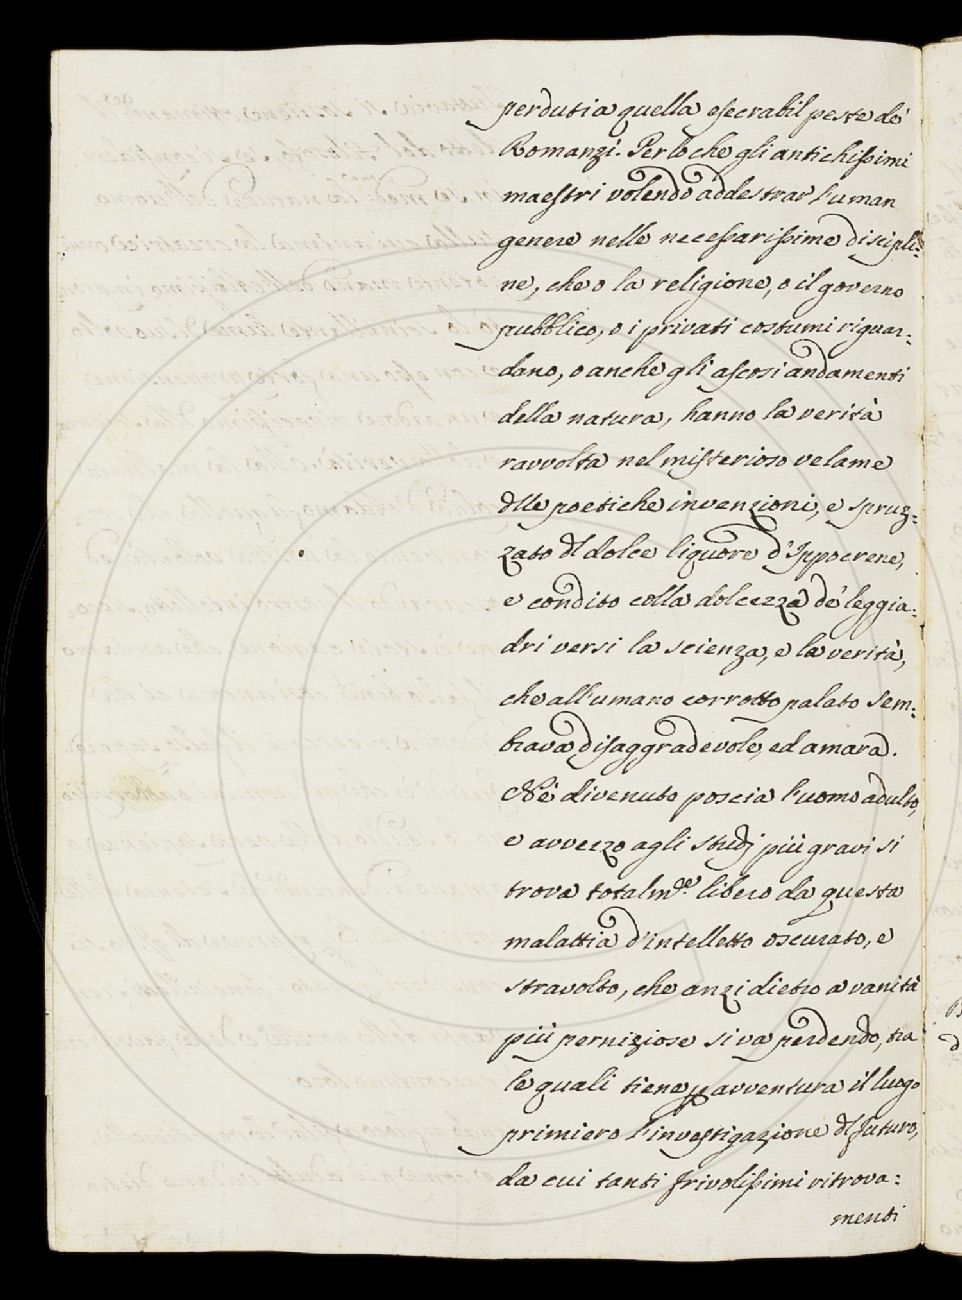 perduti a quella esecrabil peste de'
Romanzi. Perloche gli antichissimi
maestri volendo addestrar l'uman
genere nelle necessarissime discipli=
ne, che o la religione, o il governo
pubblico, o i privati costumi riguar=
dano, o anche gli ascosi andamenti
della natura, hanno la verità
ravvolta nel misterioso velame
dlle poetiche invenzioni, e spruz=
zato dl dolce liquore d'Ippocrene,
e condito colla dolcezza de' leggia=
dri versi la scienza, e la verità,
che all'umano corrotto palato sem=
brava disaggradevole, ed amara.
Nè divenuto poscia l'uomo adulto,
e avvezzo agli studj più gravi si
trova totalmte. libero da questa
malattia d'intelletto oscurato, e
stravolto, che anzi dietro a vanità
più perniziose si va perdendo, tra
le quali tiene p avventura il luogo
primiero l'investigazione dl futuro,
da cui tanti frivolissimi ritrova=
menti